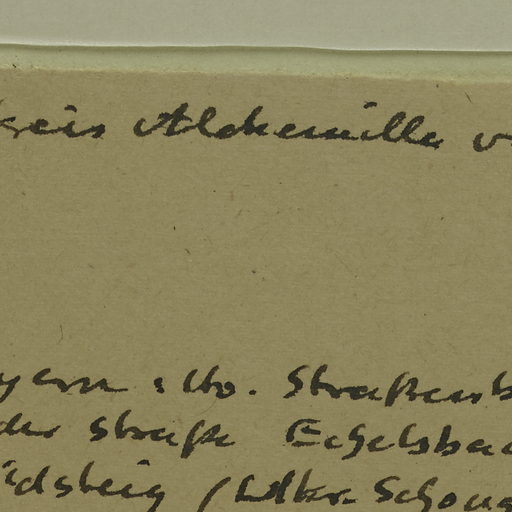 kreis Alchemilla v
yern: Wo. Straßenb
der Straße Echelsbac
ildsteig (Ldkr. Schong